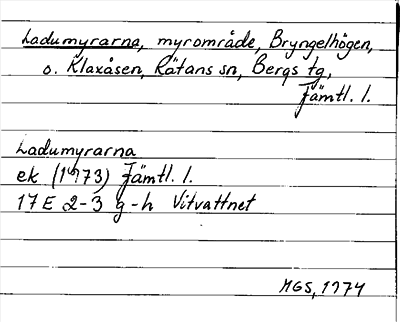 Ladumyrarna, myrområde, Bryngelhögen,
o. Klaxåsen, Rätans sn, Bergs tg,
Jämtl. l.
Ladumyrarna
ek (1973) Jämtl. l.
17E 2-3 g-h Vitvattnet
MGS, 1974